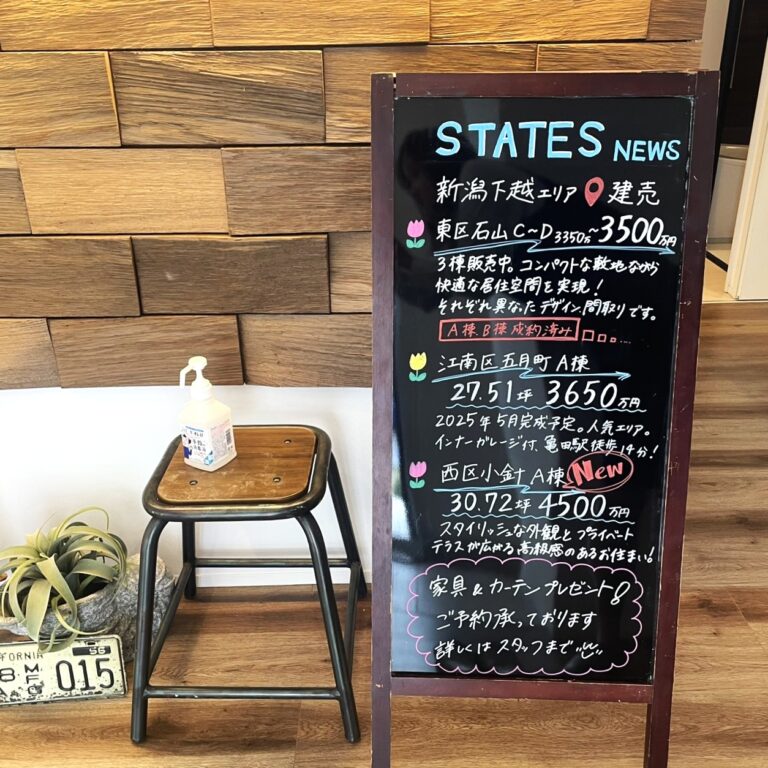 STATES NEWS
新潟下越エリア 建売
東区石山 C～D 3350万～3500万円
3棟販売中。コンパクトな敷地ながら
快適な居住空間を実現！
それぞれ異なったデザイン、間取りです。
A棟、B棟成約済み
江南区五月町 A棟
27.51坪 3650万円
2025年5月完成予定。人気エリア。
インナーガレージ付、亀田駅徒歩14分！
西区小針 A棟 New
30.72坪 4500万円
スタイリッシュな外観とプライベート
テラスが広がる高級感のあるお住まい！
家具&カーテンプレゼント！
ご予約承っております
詳しくはスタッフまで
FORNIA 56
015